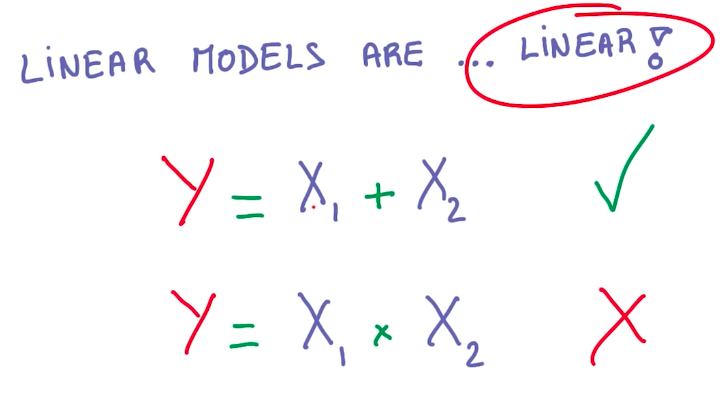 LINEAR MODELS ARE ... LINEAR!
Y = X₁ + X₂ ✓
Y = X₁ × X₂ X